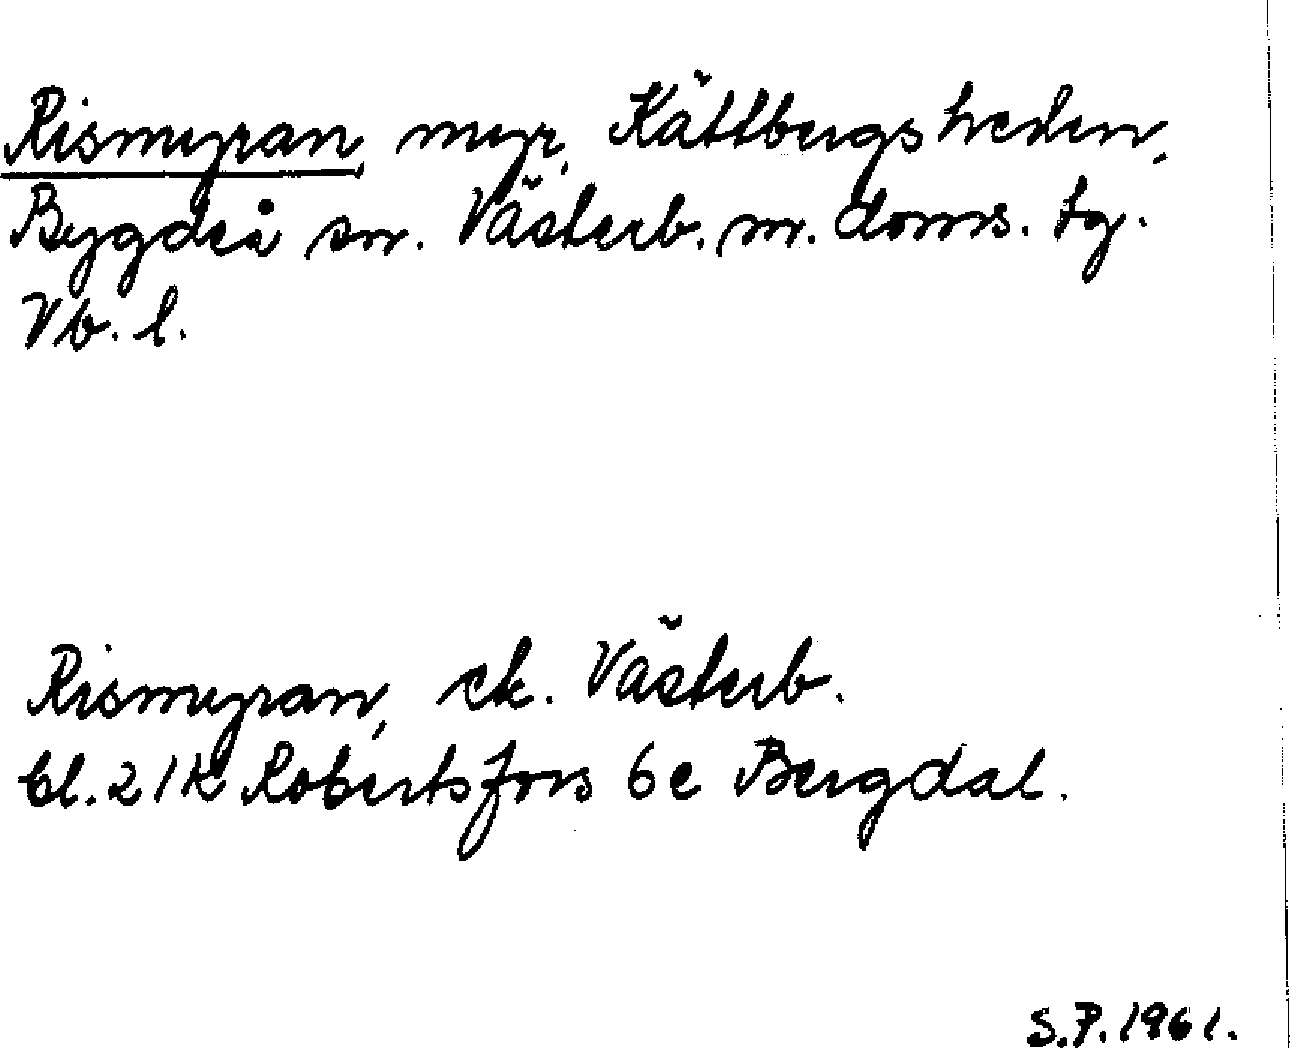 Rismyran, myr, Kättbergsheden,
Bygdeå sn. Västerb. m. doms. tg.
Vb. l.
Rismyran, ek. Västerb.
bl. 21K Robertsfors 6e Bergdal.
S.P. 1961.